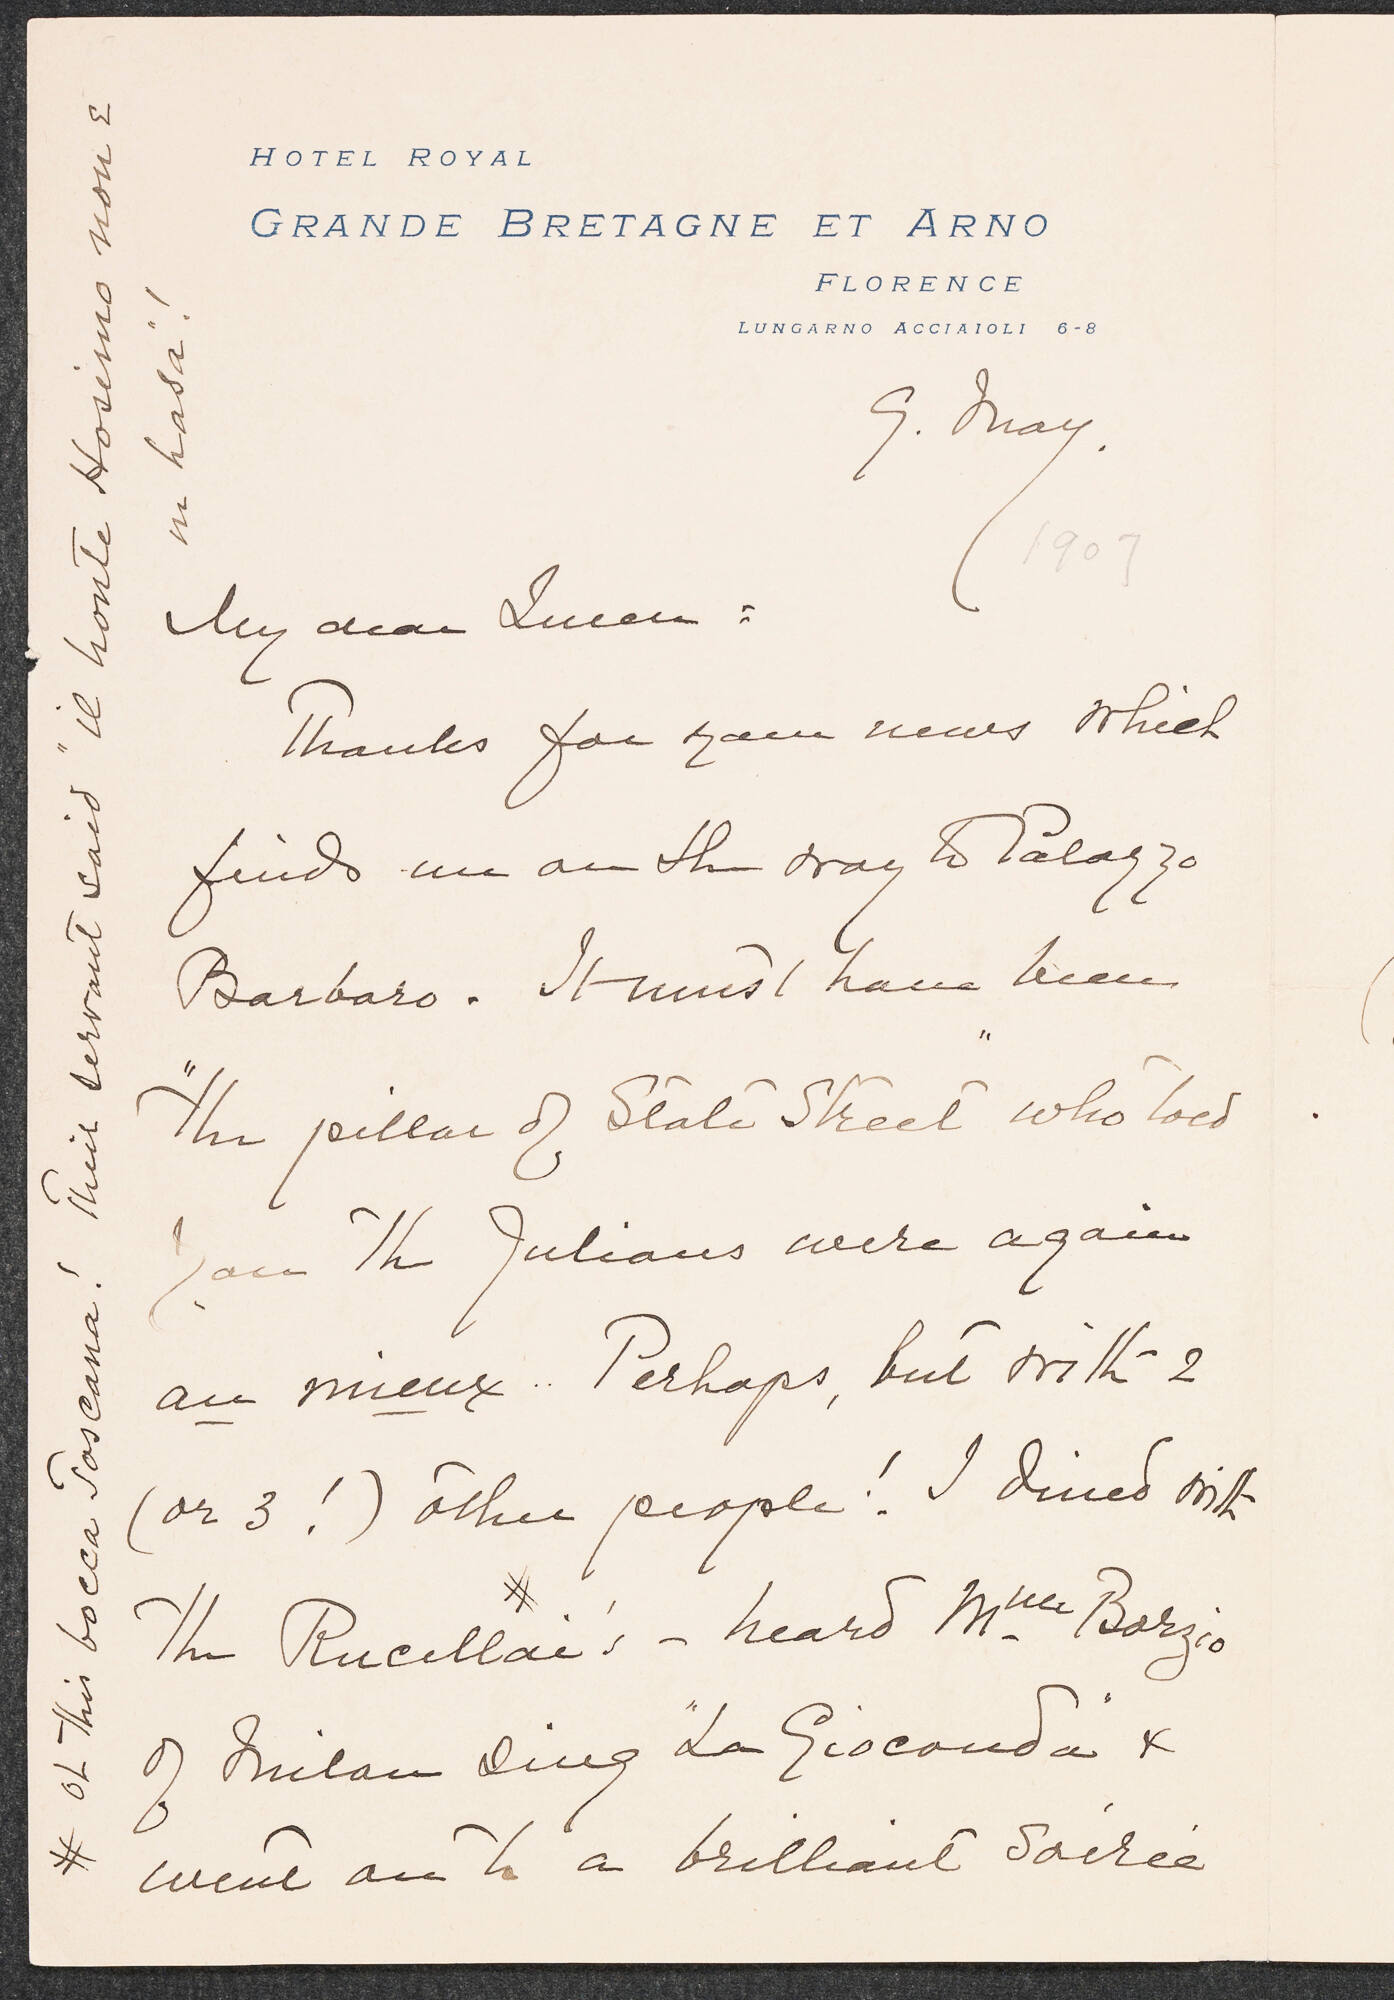 HOTEL ROYAL
GRANDE BRETAGNE ET ARNO
FLORENCE
LUNGARNO ACCIAIOLI 6-8
9. May.
1907
My dear Queen:
Thanks for your news which
finds me on the way to Palazzo
Barbaro. It must have been
"the pillar of State Street" who told
you the Julians were again
au mieux.. Perhaps, but with 2
(or 3!) other people! I dined with
the Rucellai's # - heard Mme Borzio
of Milan sing "La Gioconda" &
went on to a brilliant soirée
# oh this bocca Toscana! Their servant said "il honte Hosimo non è
in hasa"!